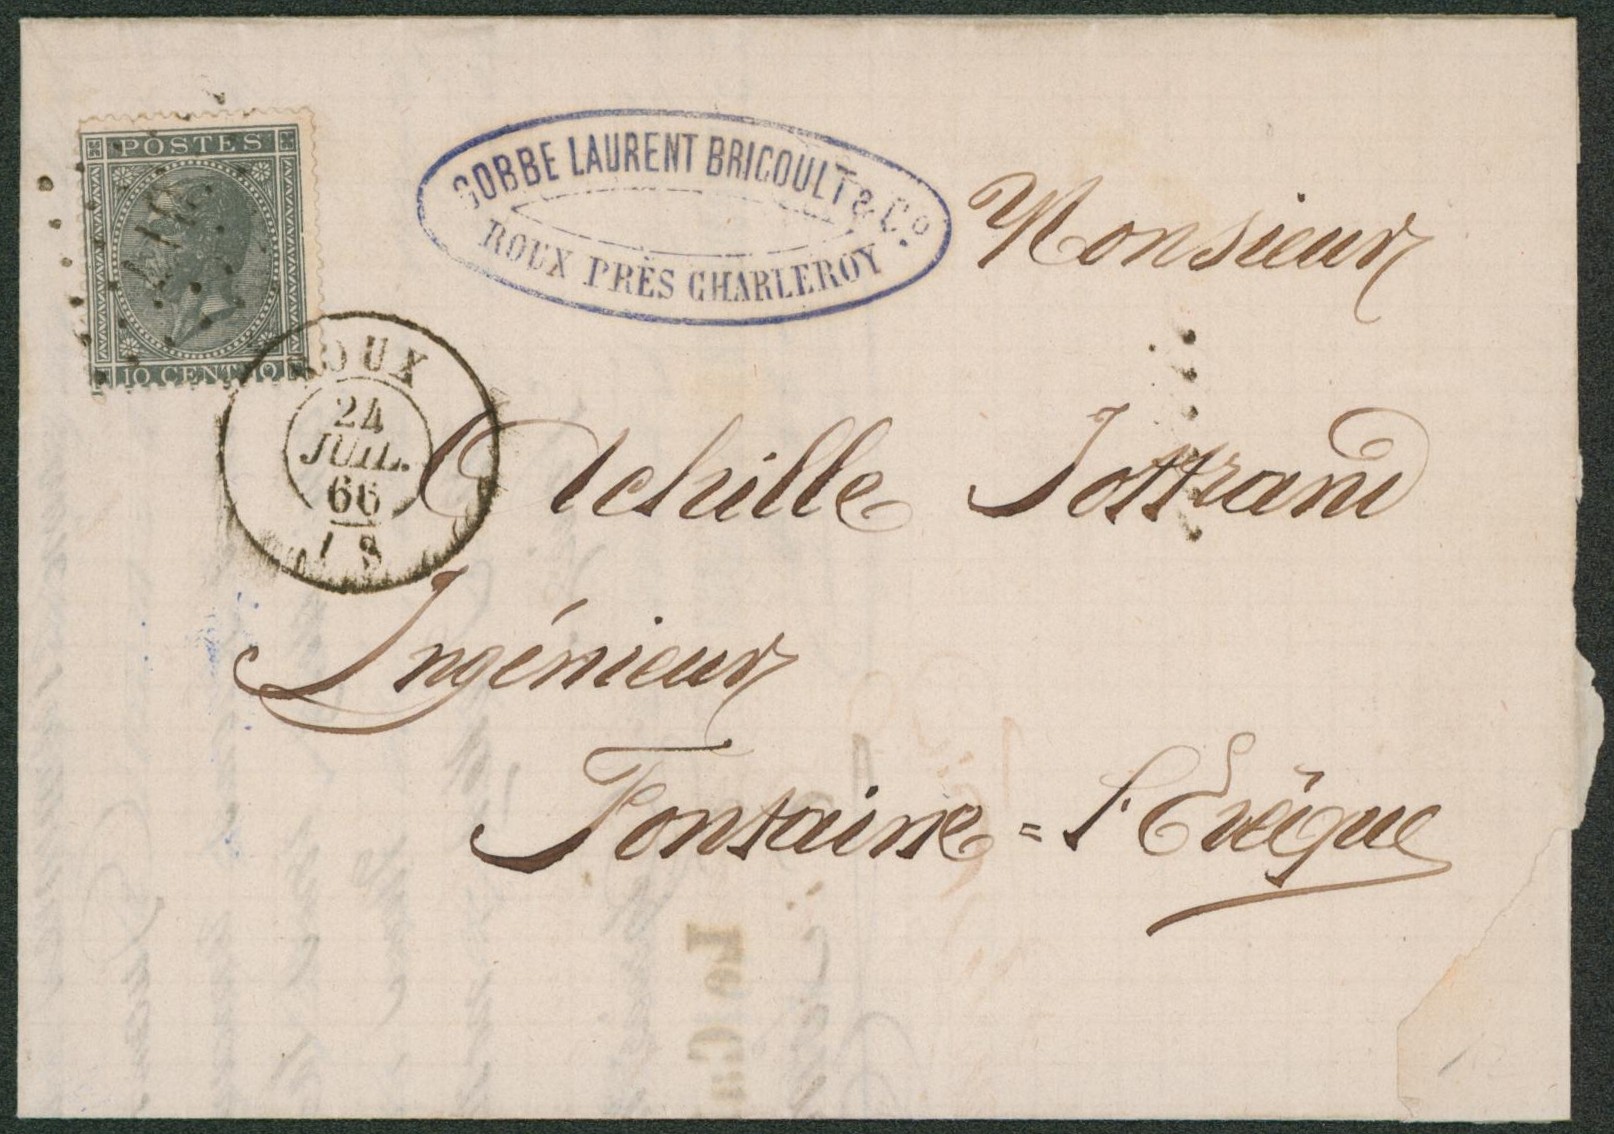 POSTES
10 CENT. 10
GOBBE LAURENT BRICOULT & C.º
ROUX PRÈS CHARLEROY
Monsieur
ROUX
24
JUIL.
66
Achille Jottrand
Ingénieur
Fontaine=l'Evêque